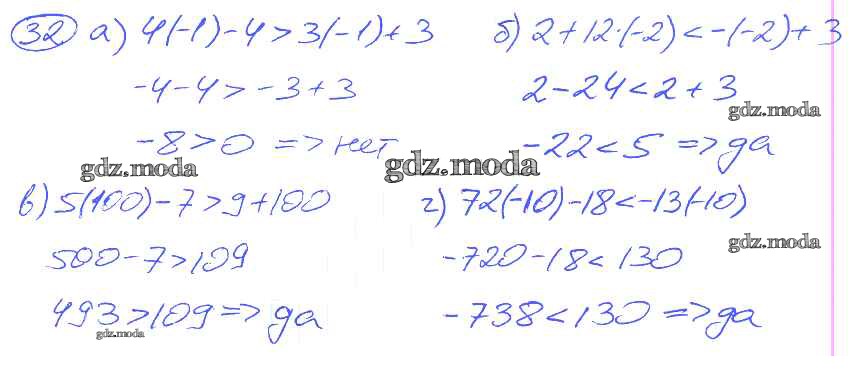 32 а) 4(-1)-4>3(-1)+3
-4-4>-3+3
-8>0 => нет
б) 2+12·(-2)<-(-2)+3
2-24<2+3
gdz.moda
-22<5 => да
gdz.moda
gdz.moda
в) 5(100)-7>9+100
500-7>109
493>109=> да
gdz.moda
г) 72(-10)-18<-13(-10)
gdz.moda
-720-18<130
-738<130 => да